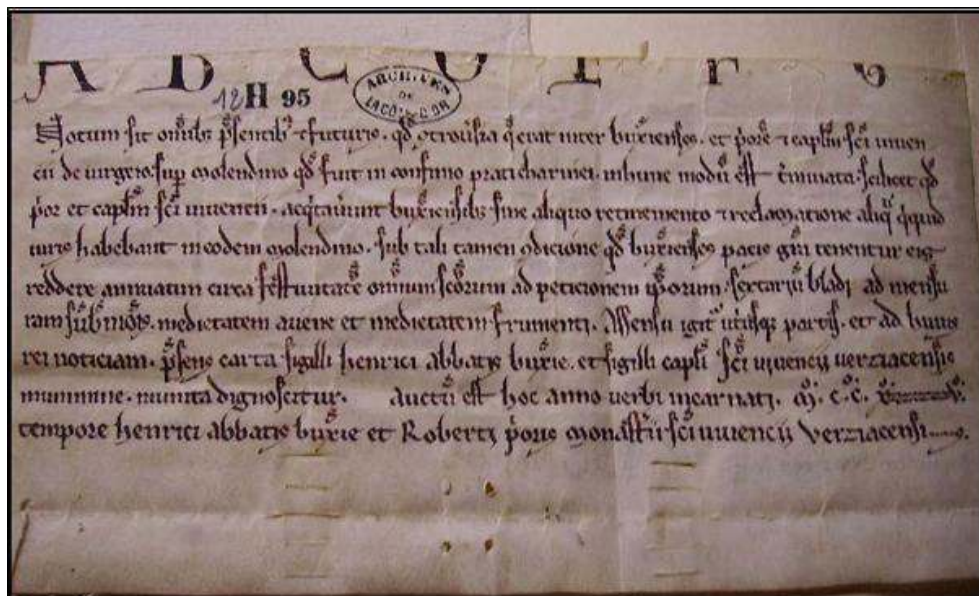 A B C D E F G
ARCHIVES DE LA COTE D'OR
12 H 95
Notum sit omīb; p̄sentib; ⁊ futuris. qd̄ ɔtrouʼsia q̄ erat inter buxienses. et p̄orē ⁊ capl̄m sc̄i uiuen
cii de uirgeio. sup̄ molendino qd̄ fuit in confinio prati charinei. in hunc modū est t̄minata. scilicet qd̄
p̄or et capl̄m sc̄i uiuencii. acq̄tauerunt buxiēsib; sine aliquo retinemento ⁊ reclamatione aliq̄ q̄cquid
iuris habebant in eodem molendino. sub tali tamen ɔdicione qd̄ buxienses pacis grā tenentur eis
reddere annuatim circa festiuitatē omnium sc̄orum ad peticionem ip̄orum. sextariū bladi ad mensu
ram medietatem auene et medietatem frumenti. Assensu igit̄ ut̄usq; partis. et ad huius
rei noticiam. p̄sens carta sigilli henrici abbatis buxie. et sigilli capl̄i sc̄i uiuencij uerziacensis
munimine. munita dignoscitur. Actū est hoc anno uerbi incarnati. m̊. c̊. c̊.
tempore henrici abbatis buxie et Robertj p̄oris monast̄ii sc̄i uiuencij verziacensis.